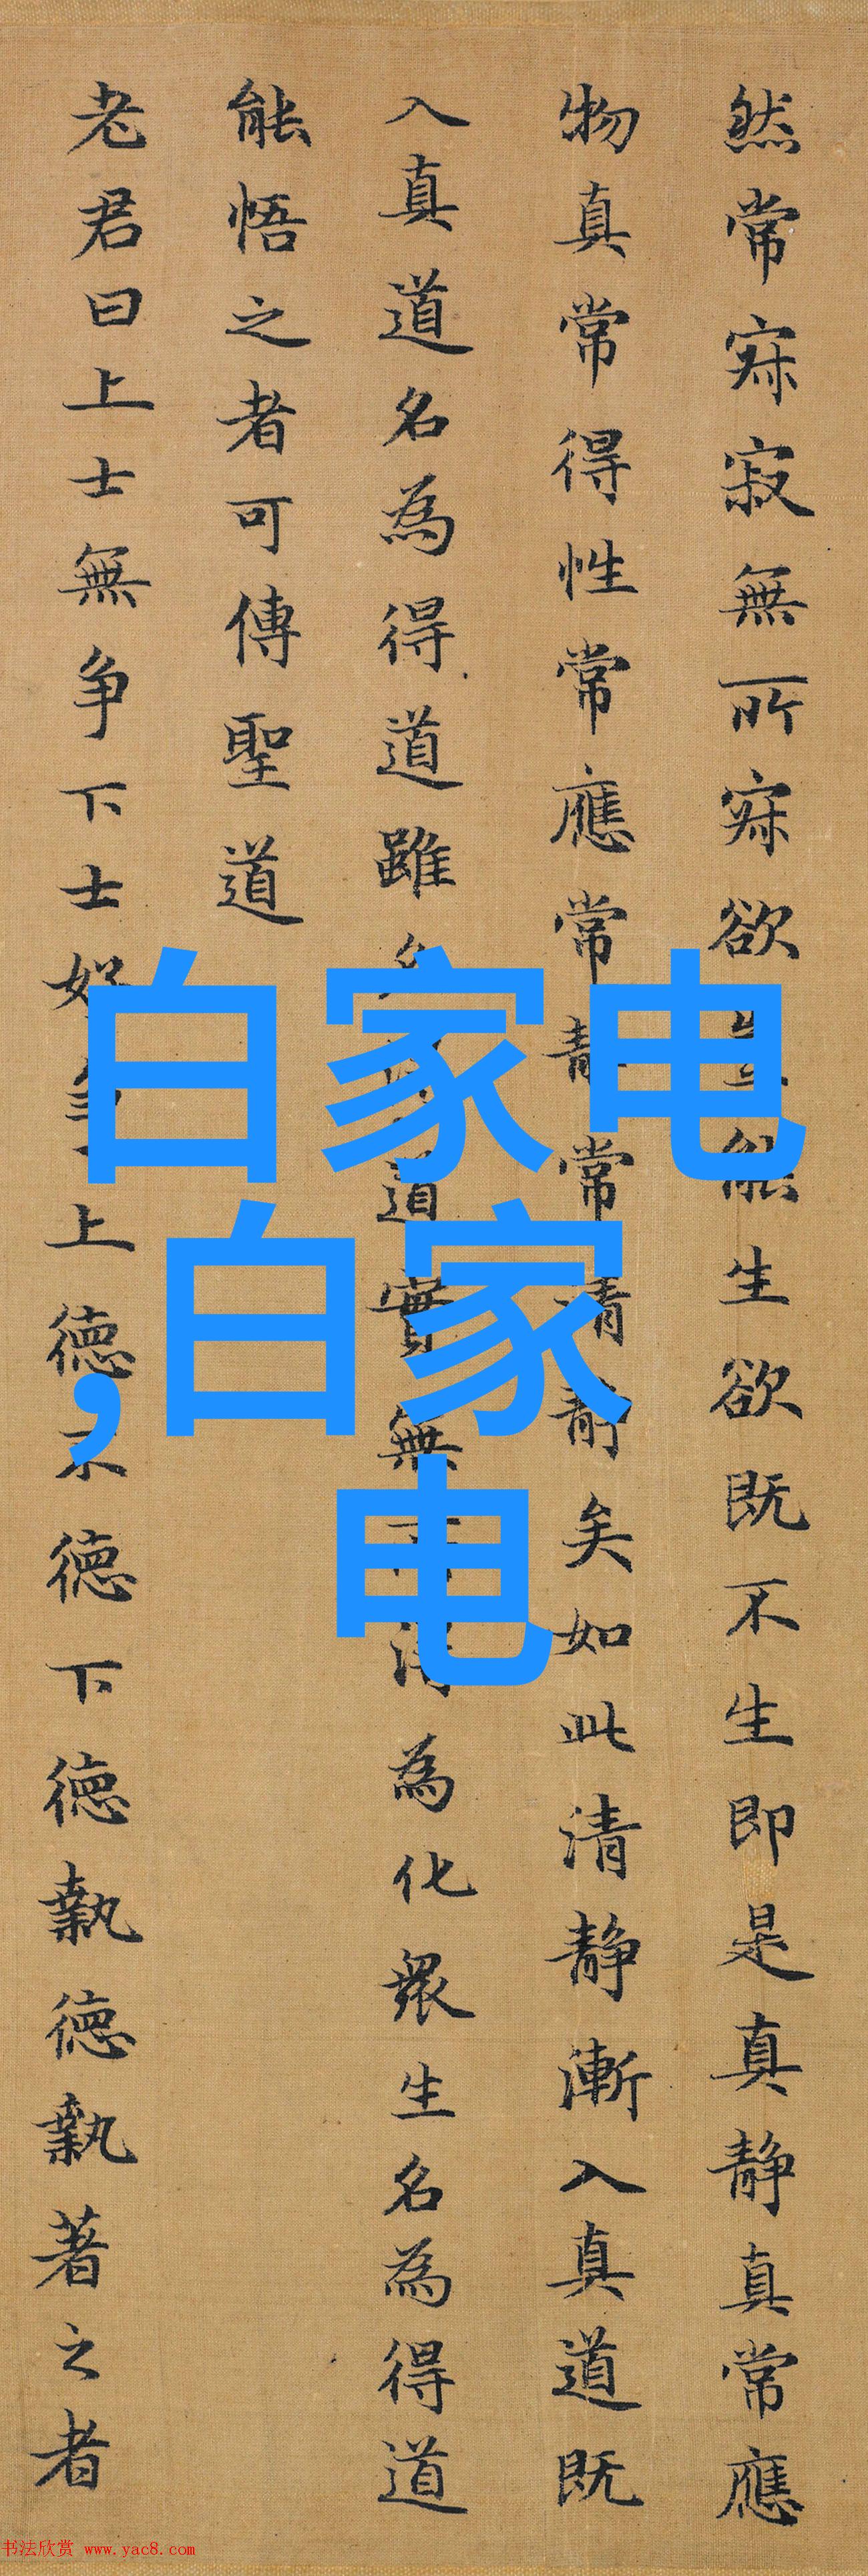 然常寂寂無所寂欲能生欲既不生即是真静真常應
物真常得性常應常静常清静矣如此清静漸入真道既
入真道名為得道雖名道實無為化眾生名為得道
能悟之者可傳聖道
老君曰上士無争下士好上德不德下德執德執著之者
白家电
,白家
电
书法欣赏 www.yac8.com